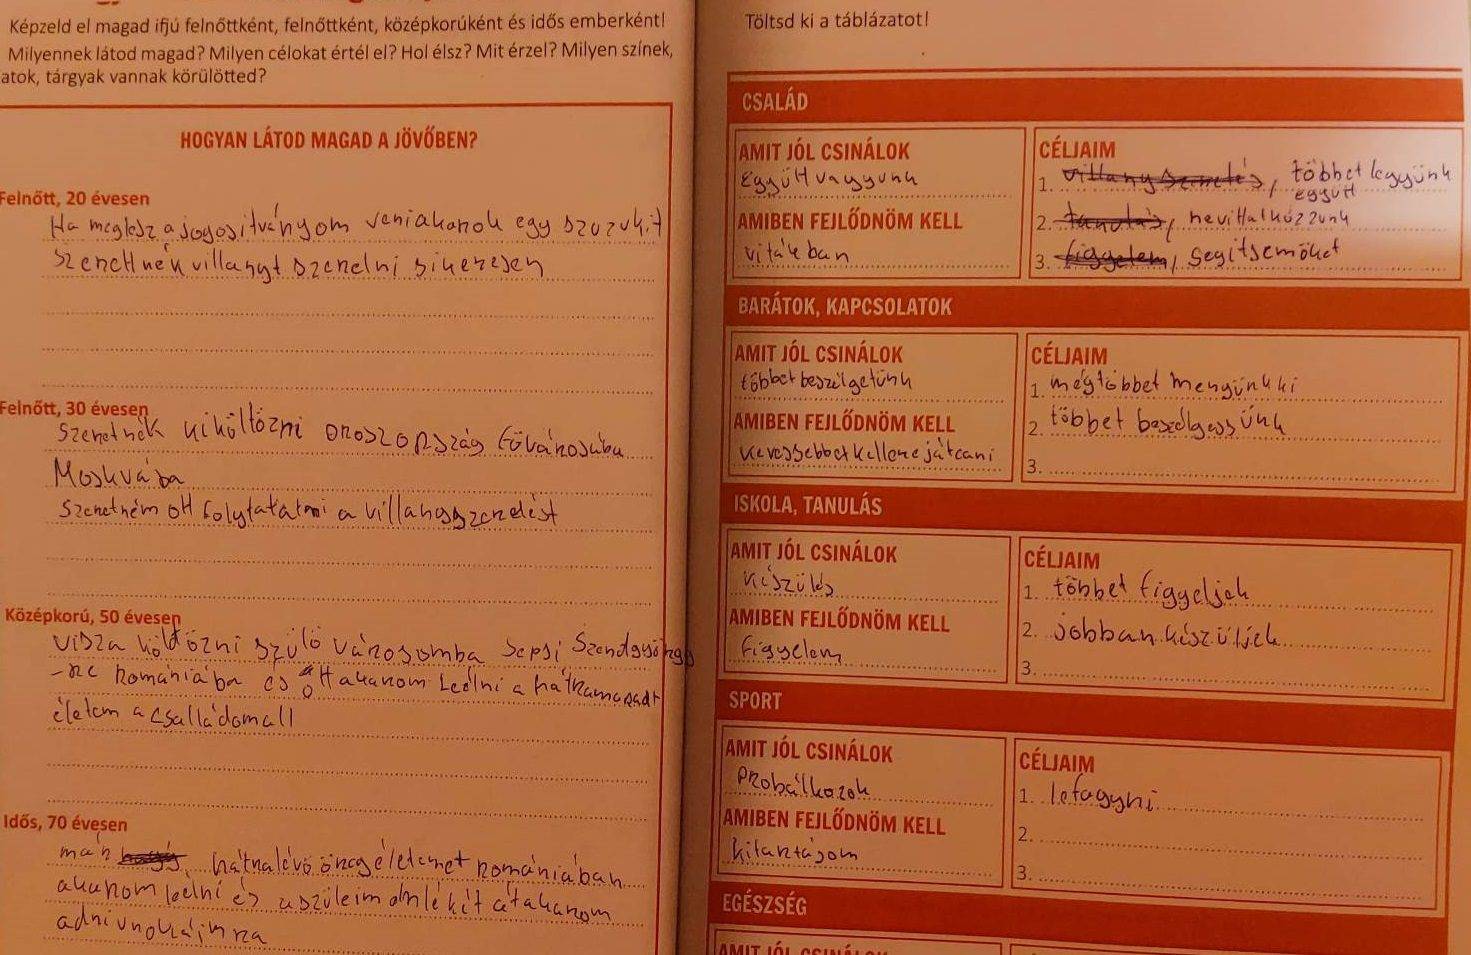 Képzeld el magad ifjú felnőttként, felnőttként, középkorúként és idős emberként!
Milyennek látod magad? Milyen célokat értél el? Hol élsz? Mit érzel? Milyen színek,
atok, tárgyak vannak körülötted?
HOGYAN LÁTOD MAGAD A JÖVŐBEN?
Felnőtt, 20 évesen
Ha meglesz a jogosítványom veniakarok egy szuzukit
szeretnék villanyt szerelni sikeresen
Felnőtt, 30 évesen
Szeretnék kiköltözni oroszország fővárosába
Moskvába
Szeretném ott folytatatni a villanyszerelést
Középkorú, 50 évesen
Visza költözni szülő városomba Sepsi Szendgyörgy
-re Romániába és ott akarom leélni a hátramaradt
életem a csalládomall
Idős, 70 évesen
már hátralévö öregéletemet romániában
akarom leélni és a szüleim emlékét átakarom
adni unokáimra
Töltsd ki a táblázatot!
CSALÁD
AMIT JÓL CSINÁLOK
Együtt vagyunk
AMIBEN FEJLŐDNÖM KELL
vitákban
CÉLJAIM
1. villanyszerelés, többet legyünk
együtt
2. tanulás, nevittalkózzunk
3. figyelem, segítsemöket
BARÁTOK, KAPCSOLATOK
AMIT JÓL CSINÁLOK
többet beszélgetünk
AMIBEN FEJLŐDNÖM KELL
kevessebbet kellene játcani
CÉLJAIM
1. mégtöbbet menyünk ki
2. többet beszélgessünk
3.
ISKOLA, TANULÁS
AMIT JÓL CSINÁLOK
Készülés
AMIBEN FEJLŐDNÖM KELL
Figyelem
CÉLJAIM
1. többet figyeljek
2. jobban készüljek
3.
SPORT
AMIT JÓL CSINÁLOK
Probálkozok
AMIBEN FEJLŐDNÖM KELL
kitartásom
CÉLJAIM
1. lefogyni
2.
3.
EGÉSZSÉG
AMIT JÓL CSINÁLOK